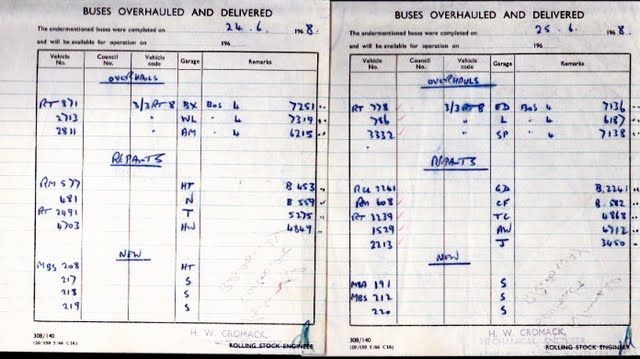 BUSES OVERHAULED AND DELIVERED
The undermentioned buses were completed on 24.6. 1968.
and will be available for operation on 196
Vehicle No. Council No. Vehicle code Garage Remarks
OVERHAULS
RT 871 3/3RT8 BX Bos 4 7251
2713 " WL " 4 7319
2811 " AM " 4 6215
REPAINTS
RM 577 HT B 453
481 N B 559
RT 2491 T 5275
4703 HW 4849
NEW
MBS 208 HT
217 S
218 S
219 S
308/140
(20/150 5/66 C16)
H. W. CROMACK,
ROLLING STOCK ENGINEER
BUSES OVERHAULED AND DELIVERED
The undermentioned buses were completed on 25.6. 1968.
and will be available for operation on 196
Vehicle No. Council No. Vehicle code Garage Remarks
OVERHAULS
RT 778 3/3RT8 ED Bos 4 7136
786 " L " 4 6187
3332 " SP " 4 7138
REPAINTS
RCL 2241 GD B.2241
RM 408 CF B.582
RT 2239 TC 4868
1529 AW 4712
2213 J 3450
NEW
MBA 191 S
MBS 212 S
220 S
308/140
(20/150 5/66 C16)
H. W. CROMACK,
MECHANICAL ENGINEER
ROLLING STOCK ENGINEER